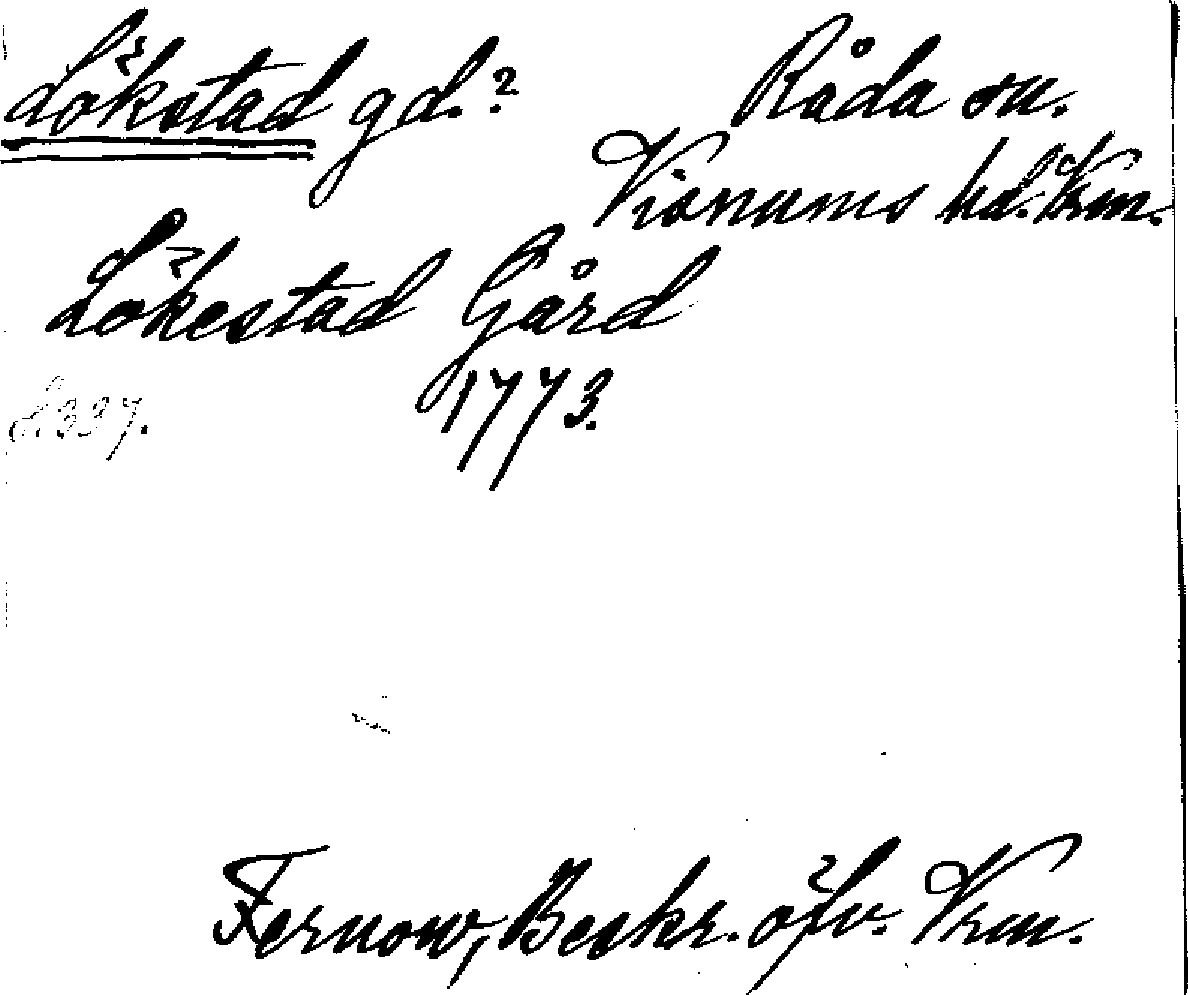 Lökstad gd.? Råda sn.
Visnums hd. Vrm.
Lökestad Gård
1773.
s. 337.
Fernow, Beskr. öfv. Vrm.